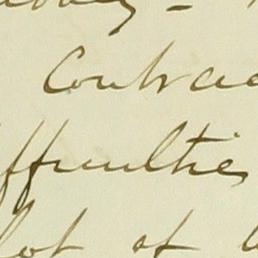 Contrac
fficulties
lot of